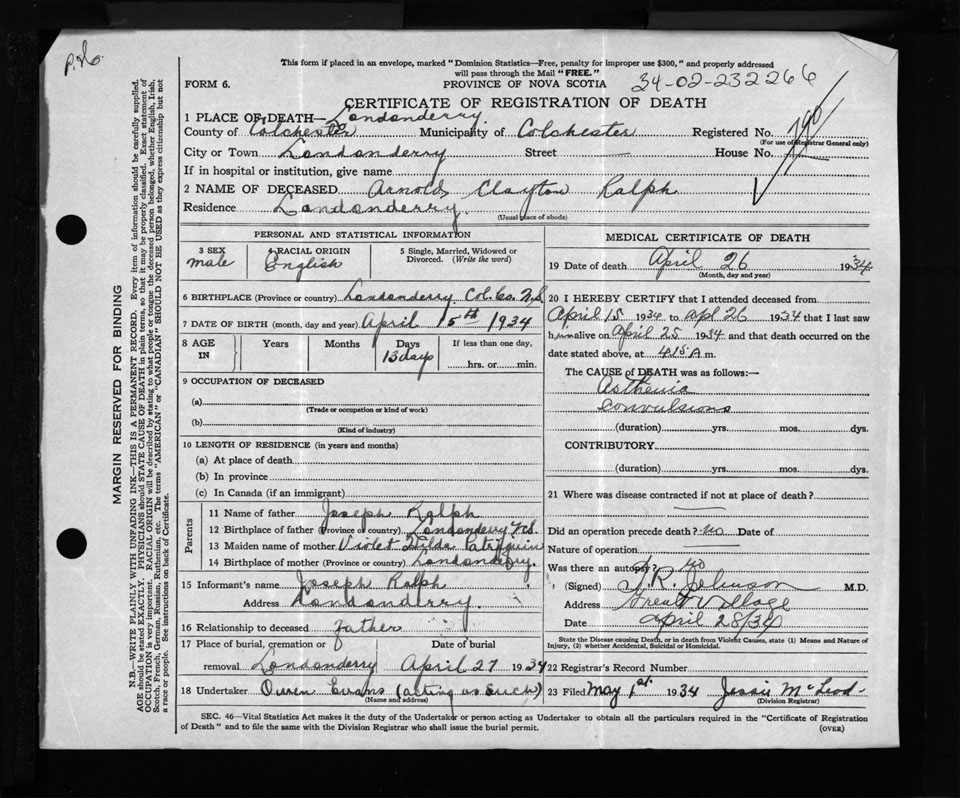 This form if placed in an envelope, marked "Dominion Statistics—Free, penalty for improper use $300," and properly addressed
will pass through the Mail "FREE."
FORM 6.
PROVINCE OF NOVA SCOTIA
34-02-232266
CERTIFICATE OF REGISTRATION OF DEATH
1 PLACE OF DEATH— Londonderry
County of Colchester Municipality of Colchester Registered No. 790
(For use of Registrar General only)
City or Town Londonderry Street — House No.
If in hospital or institution, give name
2 NAME OF DECEASED Arnold Clayton Ralph
Residence Londonderry.
(Usual place of abode)
PERSONAL AND STATISTICAL INFORMATION
3 SEX male
4 RACIAL ORIGIN English
5 Single, Married, Widowed or Divorced. (Write the word)
6 BIRTHPLACE (Province or country) Londonderry Col. Co. N.S.
7 DATE OF BIRTH (month, day and year) April 15th 1934
8 AGE IN Years Months Days 13 days If less than one day, ........hrs. or........min.
9 OCCUPATION OF DECEASED
(a)
(Trade or occupation or kind of work)
(b)
(Kind of industry)
10 LENGTH OF RESIDENCE (in years and months)
(a) At place of death
(b) In province
(c) In Canada (if an immigrant)
Parents
11 Name of father Joseph Ralph
12 Birthplace of father (Province or country) Londonderry N.S.
13 Maiden name of mother Violet Patriquin
14 Birthplace of mother (Province or country) Londonderry.
15 Informant's name Joseph Ralph
Address Londonderry.
16 Relationship to deceased father
17 Place of burial, cremation or removal Londonderry Date of burial April 27 1934
18 Undertaker Owen Evans (acting as such)
(Name and address)
MEDICAL CERTIFICATE OF DEATH
19 Date of death April 26 1934
(Month, day and year)
20 I HEREBY CERTIFY that I attended deceased from
April 15 1934 to Apl 26 1934 that I last saw
him alive on April 25 1934 and that death occurred on the
date stated above, at 4 15 A m.
The CAUSE of DEATH was as follows:—
Asthenia
Convulsions
(duration) yrs. mos. dys.
CONTRIBUTORY.
(duration) yrs. mos. dys.
21 Where was disease contracted if not at place of death?
Did an operation precede death? no Date of
Nature of operation
Was there an autopsy? no
(Signed) T. R. Johnson M.D.
Address Great Village
Date April 28/34
State the Disease causing Death, or in death from Violent Causes, state (1) Means and Nature of
Injury, (2) whether Accidental, Suicidal or Homicidal.
22 Registrar's Record Number
23 Filed May 1st. 1934 Jessie McLeod
(Division Registrar)
SEC. 46—Vital Statistics Act makes it the duty of the Undertaker or person acting as Undertaker to obtain all the particulars required in the "Certificate of Registration
of Death" and to file the same with the Division Registrar who shall issue the burial permit.
(OVER)
MARGIN RESERVED FOR BINDING
N.B.—WRITE PLAINLY WITH UNFADING INK—THIS IS A PERMANENT RECORD. Every item of information should be carefully supplied.
AGE should be stated EXACTLY. PHYSICIANS should STATE CAUSE OF DEATH in plain terms, so that it may be properly classified. Exact statement of
OCCUPATION is very important. RACIAL ORIGIN will be described by stating to what people or tongue the deceased person belonged, whether English, Irish,
Scotch, French, German, Russian, Ruthenian, etc. The terms "AMERICAN" or "CANADIAN" SHOULD NOT BE USED as they express citizenship but not
a race or people. See instructions on back of Certificate.